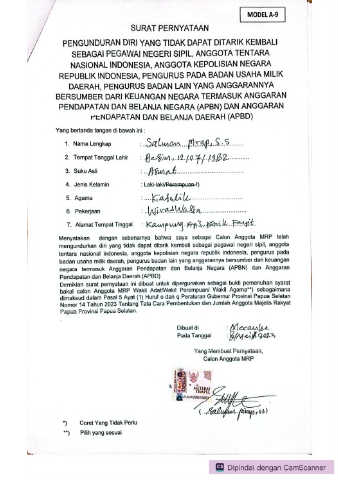 MODEL A-9
SURAT PERNYATAAN
PENGUNDURAN DIRI YANG TIDAK DAPAT DITARIK KEMBALI
SEBAGAI PEGAWAI NEGERI SIPIL, ANGGOTA TENTARA
NASIONAL INDONESIA, ANGGOTA KEPOLISIAN NEGARA
REPUBLIK INDONESIA, PENGURUS PADA BADAN USAHA MILIK
DAERAH, PENGURUS BADAN LAIN YANG ANGGARANNYA
BERSUMBER DARI KEUANGAN NEGARA TERMASUK ANGGARAN
PENDAPATAN DAN BELANJA NEGARA (APBN) DAN ANGGARAN
PENDAPATAN DAN BELANJA DAERAH (APBD)
Yang bertanda tangan di bawah ini :
1. Nama Lengkap :
2. Tempat Tanggal Lahir : 12/07/1982
3. Suku Asli : Asmat
4. Jenis Kelamin : Laki-laki/Perempuan *)
5. Agama : Katolik
6. Pekerjaan : Wiraswasta
7. Alamat Tempat Tinggal : Kampung
Menyatakan dengan sebenarnya bahwa saya sebagai Calon Anggota MRP telah
mengundurkan diri yang tidak dapat ditarik kembali sebagai pegawai negeri sipil, anggota
tentara nasional indonesia, anggota kepolisian negara republik indonesia, pengurus pada
badan usaha milik daerah, pengurus badan lain yang anggarannya bersumber dari keuangan
negara termasuk Anggaran Pendapatan dan Belanja Negara (APBN) dan Anggaran
Pendapatan dan Belanja Daerah (APBD)
Demikian surat pernyataan ini dibuat untuk dipergunakan sebagai bukti pemenuhan syarat
bakal calon Anggota MRP Wakil Adat/Wakil Perempuan/ Wakil Agama**) sebagaimana
dimaksud dalam Pasal 5 Ayat (1) Huruf o dan q Peraturan Gubernur Provinsi Papua Selatan
Nomor 14 Tahun 2023 Tentang Tata Cara Pembentukan dan Jumlah Anggota Majelis Rakyat
Papua Provinsi Papua Selatan.
Dibuat di Merauke
Pada Tanggal
Yang Membuat Pernyataan,
Calon Anggota MRP
*) Coret Yang Tidak Perlu
**) Pilih yang sesuai
Dipindai dengan CamScanner